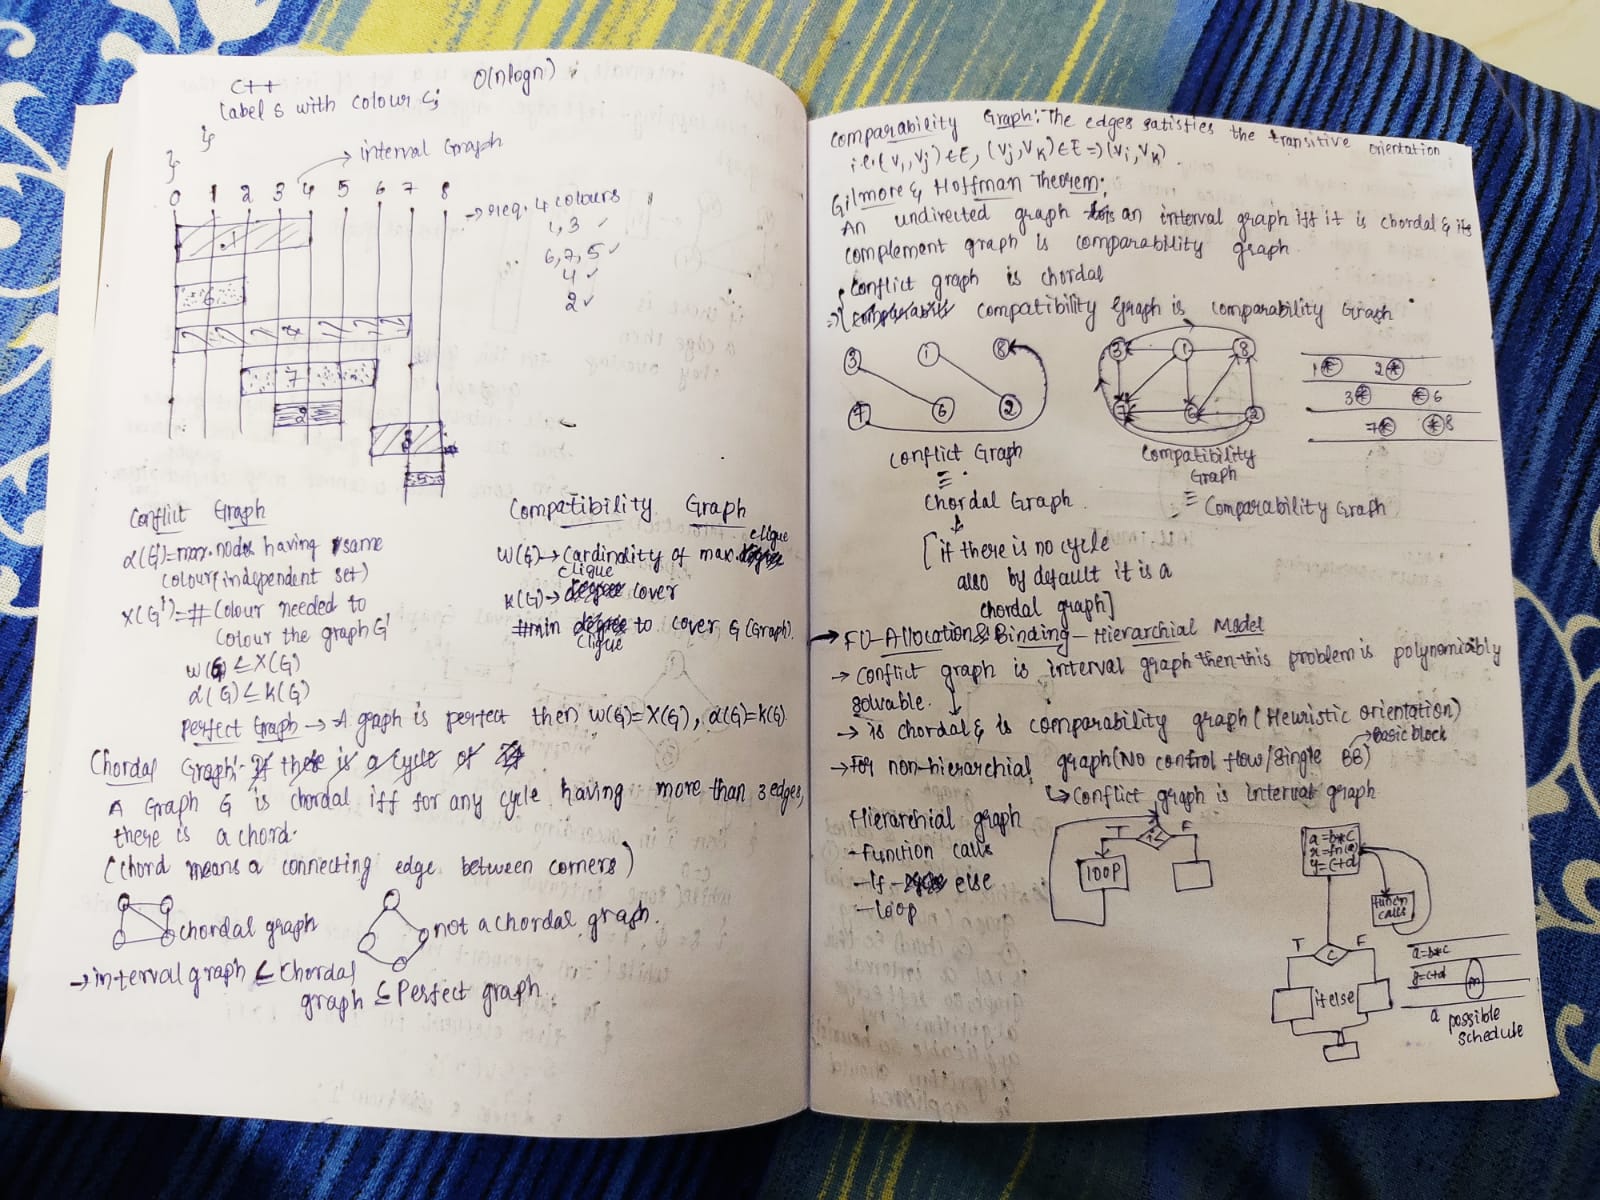 C++
O(nlogn)
Label S with colour Ci
}
}
→ interval Graph
0 1 2 3 4 5 6 7 8
→ req. 4 colours
1, 3 ✓
6, 7, 5 ✓
4 ✓
2 ✓
1
6
4
7
2
5
Conflict Graph
α(G')=max. nodes having same
colour(independent set)
X(G')=# Colour needed to
colour the graph G'
w(G) ≤ X(G)
α(G) ≤ k(G)
Compatibility Graph
w(G) → Cardinality of max. clique
k(G) → clique cover
#min clique to cover G (Graph).
Perfect Graph → A graph is perfect then w(G)=X(G), α(G)=k(G)
Chordal Graph:- If there is a cycle of
A Graph G is chordal iff for any cycle having more than 3 edges,
there is a chord.
(chord means a connecting edge between corners)
chordal graph
not a chordal graph.
→ interval graph ⊆ Chordal
graph ⊆ Perfect graph
Comparability Graph: The edges satisfies the transitive orientation
i.e. (Vi, Vj) ∈ E, (Vj, VK) ∈ E => (Vi, VK).
Gilmore & Hoffman Theorem:
An undirected graph is an interval graph iff it is chordal & its
complement graph is comparability graph.
Conflict graph is chordal
=> compatibility Graph is comparability Graph
3 1 8
7 6 2
Conflict Graph
≡
Chordal Graph
[if there is no cycle
also by default it is a
chordal graph]
3 1 8
7 6 2
Compatibility
Graph
≡ Comparability Graph
1 * 2 *
3 * * 6
7 * * 8
→ FU-Allocation & Binding - Hierarchial Model
→ Conflict graph is interval graph then this problem is polynomiably
solvable.
→ is chordal & is comparability graph (Heuristic orientation)
→ Basic block
→ For non-hierarchial graph (No control flow/Single BB)
↳ Conflict graph is interval graph
Hierarchial graph
- function calls
- If - else
- loop
T i< F
loop
a=b*c
x=fn(a)
y=c+d
function
calls
T c F
if else
a=b*c
y=c+d
m
a possible
schedule